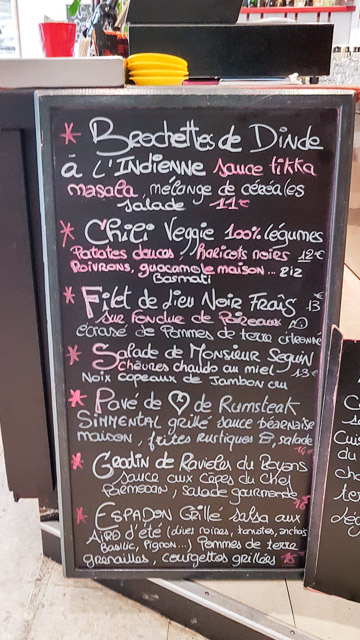 * Brochettes de Dinde
à L'Indienne sauce tikka
masala, mélange de céréales
salade 11€
* Chili Veggie 100% légumes
Patates douces, haricots noirs 12€
Poivrons, guacamole maison... Riz
Basmati
* Filet de Lieu Noir Frais 13€
sur Fondue de Poireaux
écrasé de Pommes de terre citronné
* Salade de Monsieur Seguin
chèvres chauds au miel 13€
Noix copeaux de Jambon cru
* Pavé de ♡ de Rumsteak
Simmental grillé sauce béarnaise
maison, frites rustiques & salade
* Gratin de Ravioles du Royans
sauce aux cèpes du chef
Parmesan, salade gourmande
* Espadon Grillé salsa aux
Airs d'été (olives noires, tomates, anchois
Basilic, Pignon...) Pommes de terre
grenailles, courgettes grillées 15